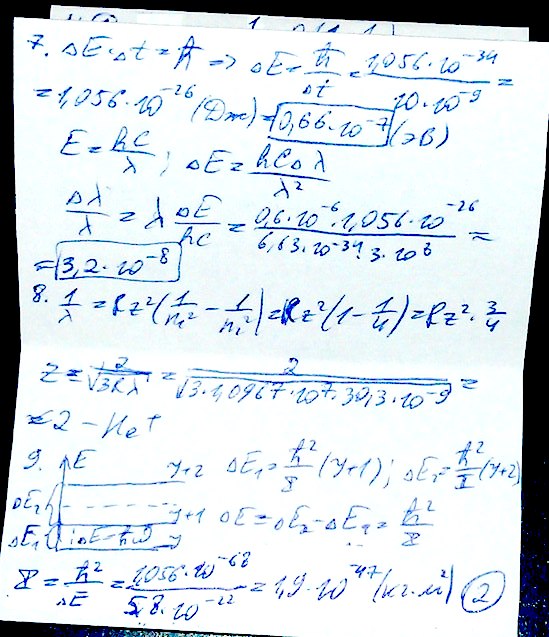 7. ΔE·Δt = ħ => ΔE = ħ/Δt = 1,056·10^-34/10·10^-9 =
= 1,056·10^-26 (Дж) = 0,66·10^-7 (эВ)
E = hc/λ ; ΔE = hcΔλ/λ^2
Δλ/λ = λ ΔE/hc = 0,6·10^-6·1,056·10^-26/6,63·10^-34·3·10^8 =
= 3,2·10^-8
8. 1/λ = Rz^2(1/n₁^2 - 1/n₂^2) = Rz^2(1 - 1/4) = Rz^2·3/4
z = 2/√3Rλ = 2/√3·1,0967·10^7·30,3·10^-9 =
= 2 - He^+
9. E
y+2 ΔE₁ = ħ^2/I (y+1); ΔE₂ = ħ^2/I (y+2)
ΔE₂ y+1 ΔE = ΔE₂ - ΔE₁ = ħ^2/I
ΔE₁ ΔE = ħω y
I = ħ^2/ΔE = 1,056·10^-68/5,8·10^-22 = 1,9·10^-47 (кг·м^2) 2